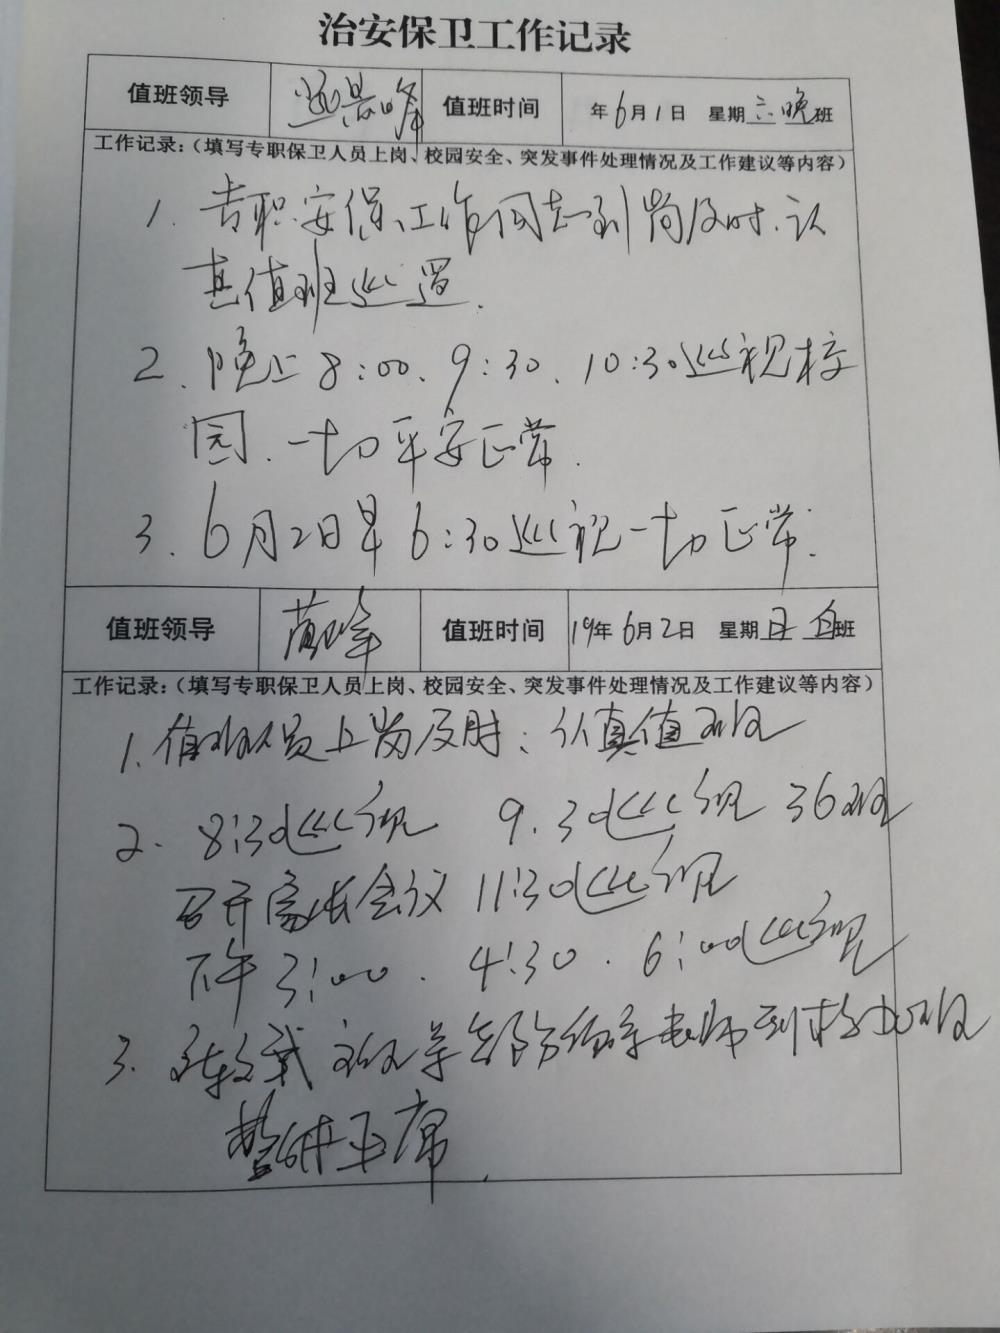 治安保卫工作记录
值班领导 值班时间 年6月1日 星期六晚班
工作记录:(填写专职保卫人员上岗、校园安全、突发事件处理情况及工作建议等内容)
1. 专职安保工作同志到岗及时、认
真值班巡逻.
2. 晚上8:00、9:30、10:30巡视校
园、一切平安正常.
3. 6月2日早6:30巡视一切正常.
值班领导 值班时间 19年6月2日 星期日 白班
工作记录:(填写专职保卫人员上岗、校园安全、突发事件处理情况及工作建议等内容)
1. 值班人员上岗及时;认真值班
2. 8:30巡视 9.30巡视 36班
召开家长会议 11:30巡视
下午3:00. 4:30. 6:00巡视
3. 班 老师到校